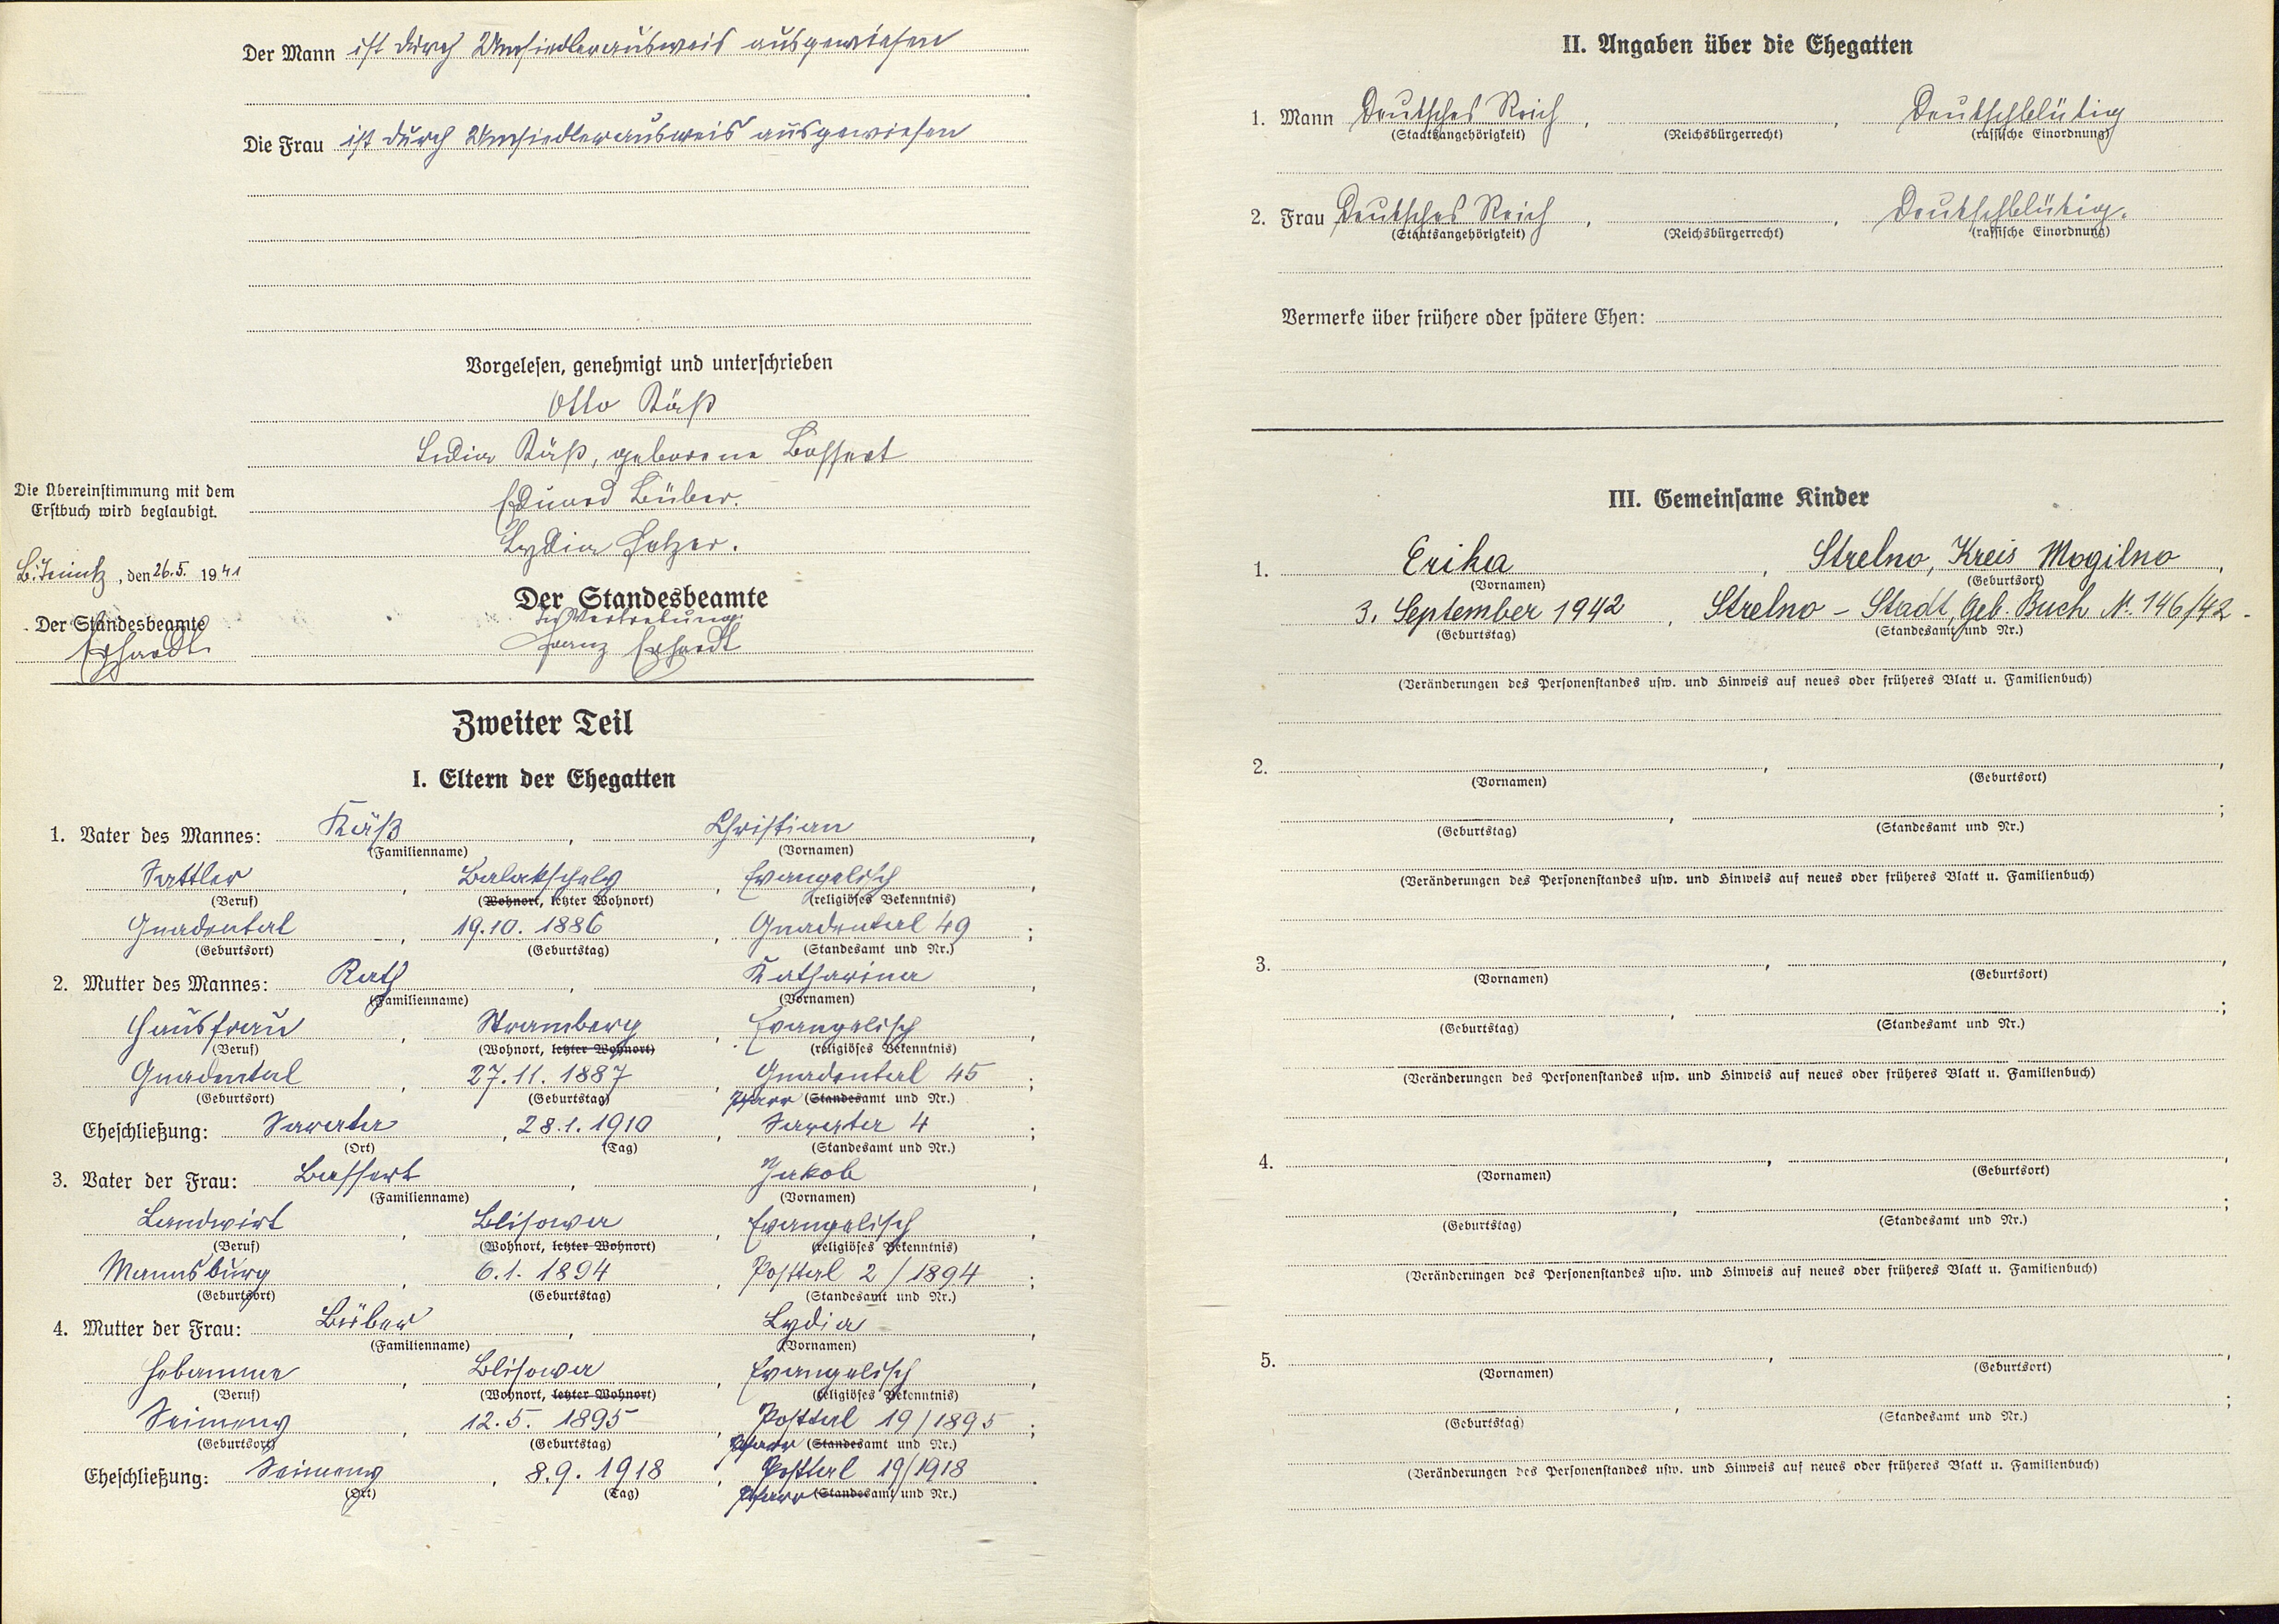 Der Mann ist durch Umsiedlerausweis ausgewiesen
Die Frau ist durch Umsiedlerausweis ausgewiesen
Vorgelesen, genehmigt und unterschrieben
Otto Käß
Lydia Käß, geborene Bossert
Eduard Büber.
Lydia
Die Übereinstimmung mit dem
Erstbuch wird beglaubigt.
, den 26.5. 1941
Der Standesbeamte
Erhardt
Der Standesbeamte
In Vertretung:
Franz Erhardt
Zweiter Teil
I. Eltern der Ehegatten
1. Vater des Mannes: Käß, Christian,
(Familienname) (Vornamen)
Sattler, Balaktschely, Evangelisch,
(Beruf) (Wohnort, letzter Wohnort) (religiöses Bekenntnis)
Gnadental, 19.10. 1886, Gnadental 49;
(Geburtsort) (Geburtstag) (Standesamt und Nr.)
2. Mutter des Mannes: Rath, Katharina,
(Familienname) (Vornamen)
Hausfrau, Stramberg, Evangelisch,
(Beruf) (Wohnort, letzter Wohnort) (religiöses Bekenntnis)
Gnadental, 27.11. 1887, Gnadental 45;
(Geburtsort) (Geburtstag) Pfarr (Standesamt und Nr.)
Eheschließung: Sarata, 28.1. 1910, Sarata 4;
(Ort) (Tag) (Standesamt und Nr.)
3. Vater der Frau: Bossert, Jakob,
(Familienname) (Vornamen)
Landwirt, Blisowa, Evangelisch,
(Beruf) (Wohnort, letzter Wohnort) (religiöses Bekenntnis)
Mannsburg, 6.1. 1894, Posttal 2/1894;
(Geburtsort) (Geburtstag) (Standesamt und Nr.)
4. Mutter der Frau: Büber, Lydia,
(Familienname) (Vornamen)
Hebamme, Blisowa, Evangelisch,
(Beruf) (Wohnort, letzter Wohnort) (religiöses Bekenntnis)
Seimeny, 12.5. 1895, Posttal 19/1895;
(Geburtsort) (Geburtstag) Pfarr (Standesamt und Nr.)
Eheschließung: Seimeny, 8.9. 1918, Posttal 19/1918.
(Ort) (Tag) Pfarr (Standesamt und Nr.)
II. Angaben über die Ehegatten
1. Mann Deutsches Reich, , Deutschblütig
(Staatsangehörigkeit) (Reichsbürgerrecht) (rassische Einordnung)
2. Frau Deutsches Reich, , Deutschblütig.
(Staatsangehörigkeit) (Reichsbürgerrecht) (rassische Einordnung)
Vermerke über frühere oder spätere Ehen:
III. Gemeinsame Kinder
1. Erika, Strelno, Kreis Mogilno,
(Vornamen) (Geburtsort)
3. September 1942, Strelno - Stadt, Geb. Buch N. 146/42.
(Geburtstag) (Standesamt und Nr.)
(Veränderungen des Personenstandes usw. und Hinweis auf neues oder früheres Blatt u. Familienbuch)
2. , ,
(Vornamen) (Geburtsort)
, ;
(Geburtstag) (Standesamt und Nr.)
(Veränderungen des Personenstandes usw. und Hinweis auf neues oder früheres Blatt u. Familienbuch)
3. , ,
(Vornamen) (Geburtsort)
, ;
(Geburtstag) (Standesamt und Nr.)
(Veränderungen des Personenstandes usw. und Hinweis auf neues oder früheres Blatt u. Familienbuch)
4. , ,
(Vornamen) (Geburtsort)
, ;
(Geburtstag) (Standesamt und Nr.)
(Veränderungen des Personenstandes usw. und Hinweis auf neues oder früheres Blatt u. Familienbuch)
5. , ,
(Vornamen) (Geburtsort)
, ;
(Geburtstag) (Standesamt und Nr.)
(Veränderungen des Personenstandes usw. und Hinweis auf neues oder früheres Blatt u. Familienbuch)